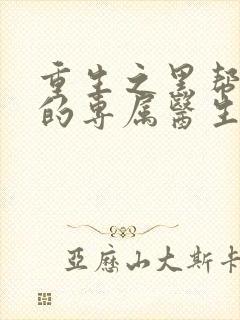 重生之黑帮
的专属醫生
亞歷山大斯卡